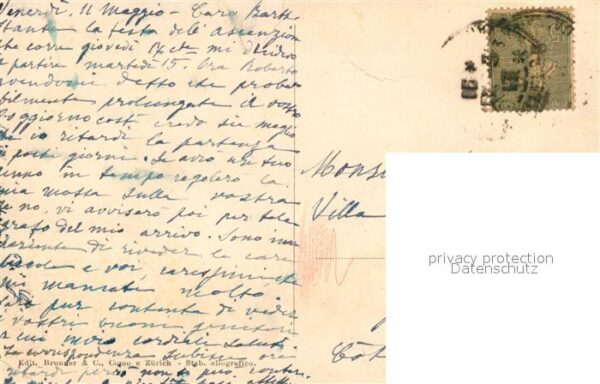 Venerdì, 11 Maggio - Caro Barth
Stante la festa dell' Ascenzione
che corre giovedì 17 cte mi decidevo
a partire martedì 15. Ora Roberto
avendomi detto che probabilmente
prolungate il vostro
soggiorno costì credo sia meglio
io ritardi la partenza
di pochi giorni. Se avrò un tuo
cenno in tempo regolerò la
mia mossa sulla vostra
se no, vi avviserò poi per tele
grafo del mio arrivo. Sono im
paziente di riveder le care
e voi, carissimi che
mi mancate molto.
Sarò pur contenta di veder
i vostri buoni genitori
a cui invio cordiali saluti.
La corrispondenza subisce ora
ritardi perciò non
Edit. Brunner & C., Como e Zürich - Stab. eliografico.
Monsi
Villa
Côt
privacy protection
Datenschutz